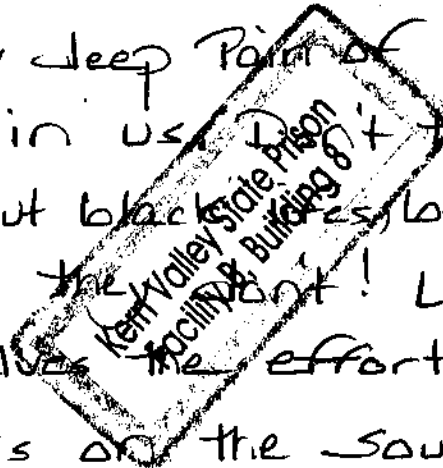 deep Pain of
in us. Don't
black
the don't!
the effort
s on the sou
Kern Valley State Prison
Facility B, Building 8